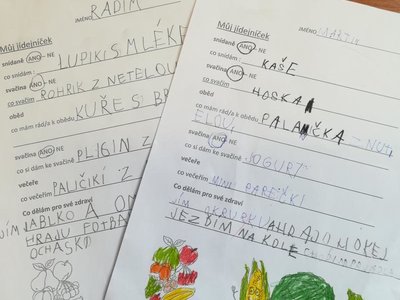 JMÉNO RADIM
Můj jídelníček
snídaně ANO - NE
co snídám: LUPIKI S MLÉKE
svačina ANO - NE
co svačím ROHRIK Z NETELOU
oběd
co mám rád/a k obědu KUŘE S BR
svačina ANO - NE
co si dám ke svačině PLIGIN Z
večeře ANO - NE
co večeřím PALIČIKI Z
Co dělám pro své zdraví
JÍM JABLKO A
HRAJU FOTBA
OCHASKD
JMÉNO MARTIN
Můj jídelníček
snídaně ANO - NE
co snídám: KAŠE
svačina ANO - NE
co svačím HOSKA
oběd
co mám rád/a k obědu PALAČKA - NUT
ELOU
svačina ANO - NE
co si dám ke svačině JOGURT
večeře ANO - NE
co večeřím MINI PAREČKI
Co dělám pro své zdraví
JÍM OKRURKU AHDAJI HOKEJ
JEZDÍM NA KOLE